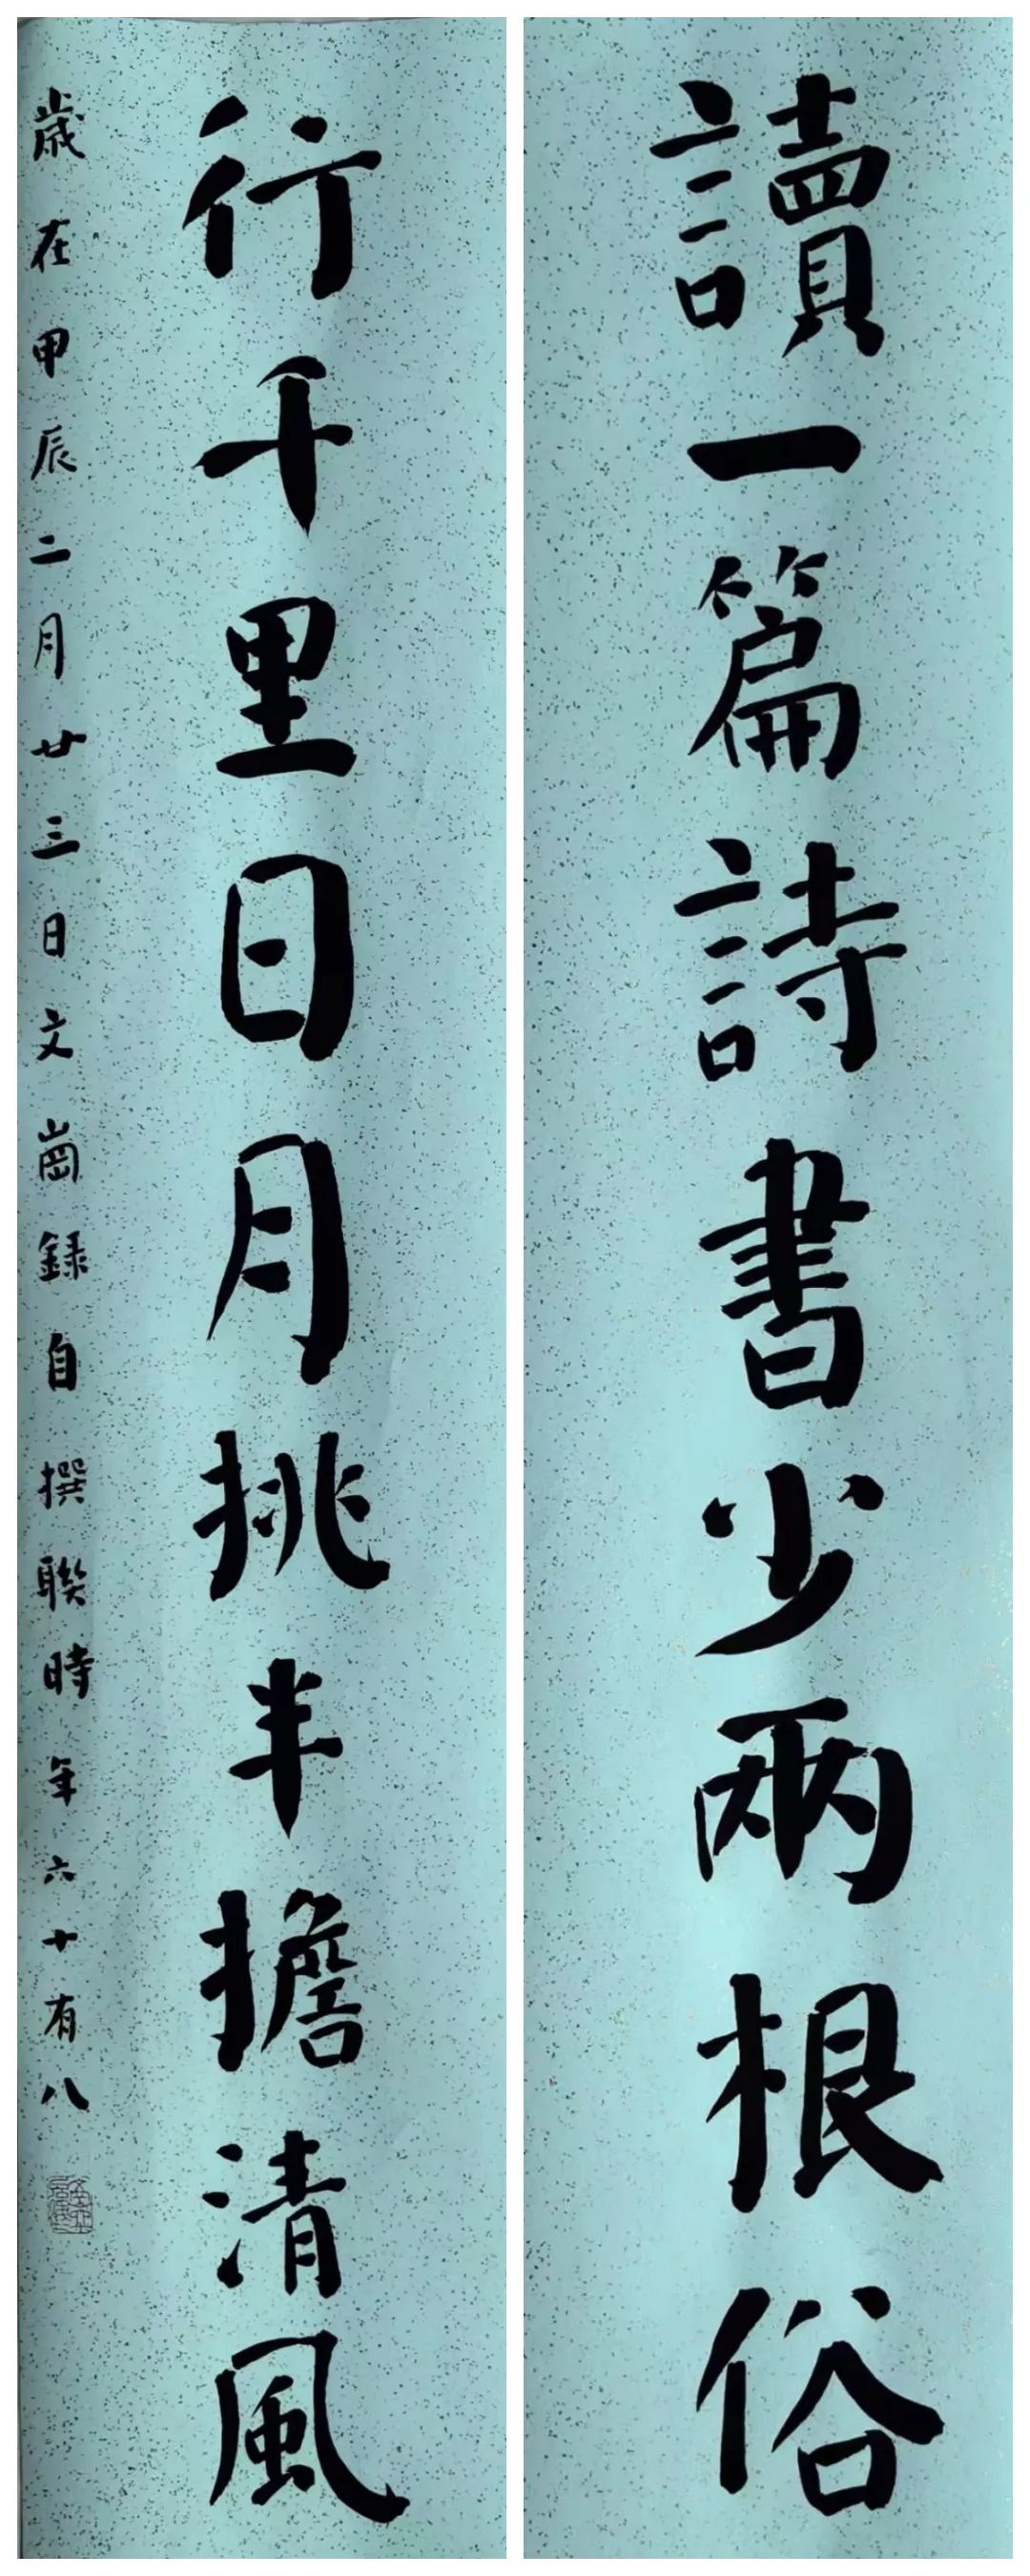 讀一篇詩書少兩根俗
行千里日月挑半擔清風
歲在甲辰二月廿三日文崗録自撰聯時年六十有八